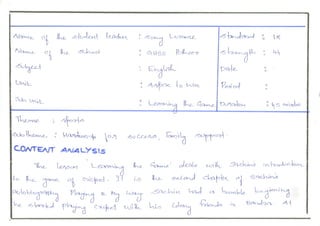 Name of the student teacher : Sony Standard : IX
Name of the school : GHSS Strength : 41
Subject : English Date :
Unit : Aspire to Win Period :
Sub unit : Learning the Game Duration : 45 minutes
Theme : Sports
Sub theme : Hardwork for success, Family support.
CONTENT ANALYSIS
The lesson 'Learning the Game' deals with Sachin's introduction
to the game of cricket. It is the second chapter of Sachin's
autobiography Playing it My Way. Sachin had a humble beginning
he started playing cricket with his friends